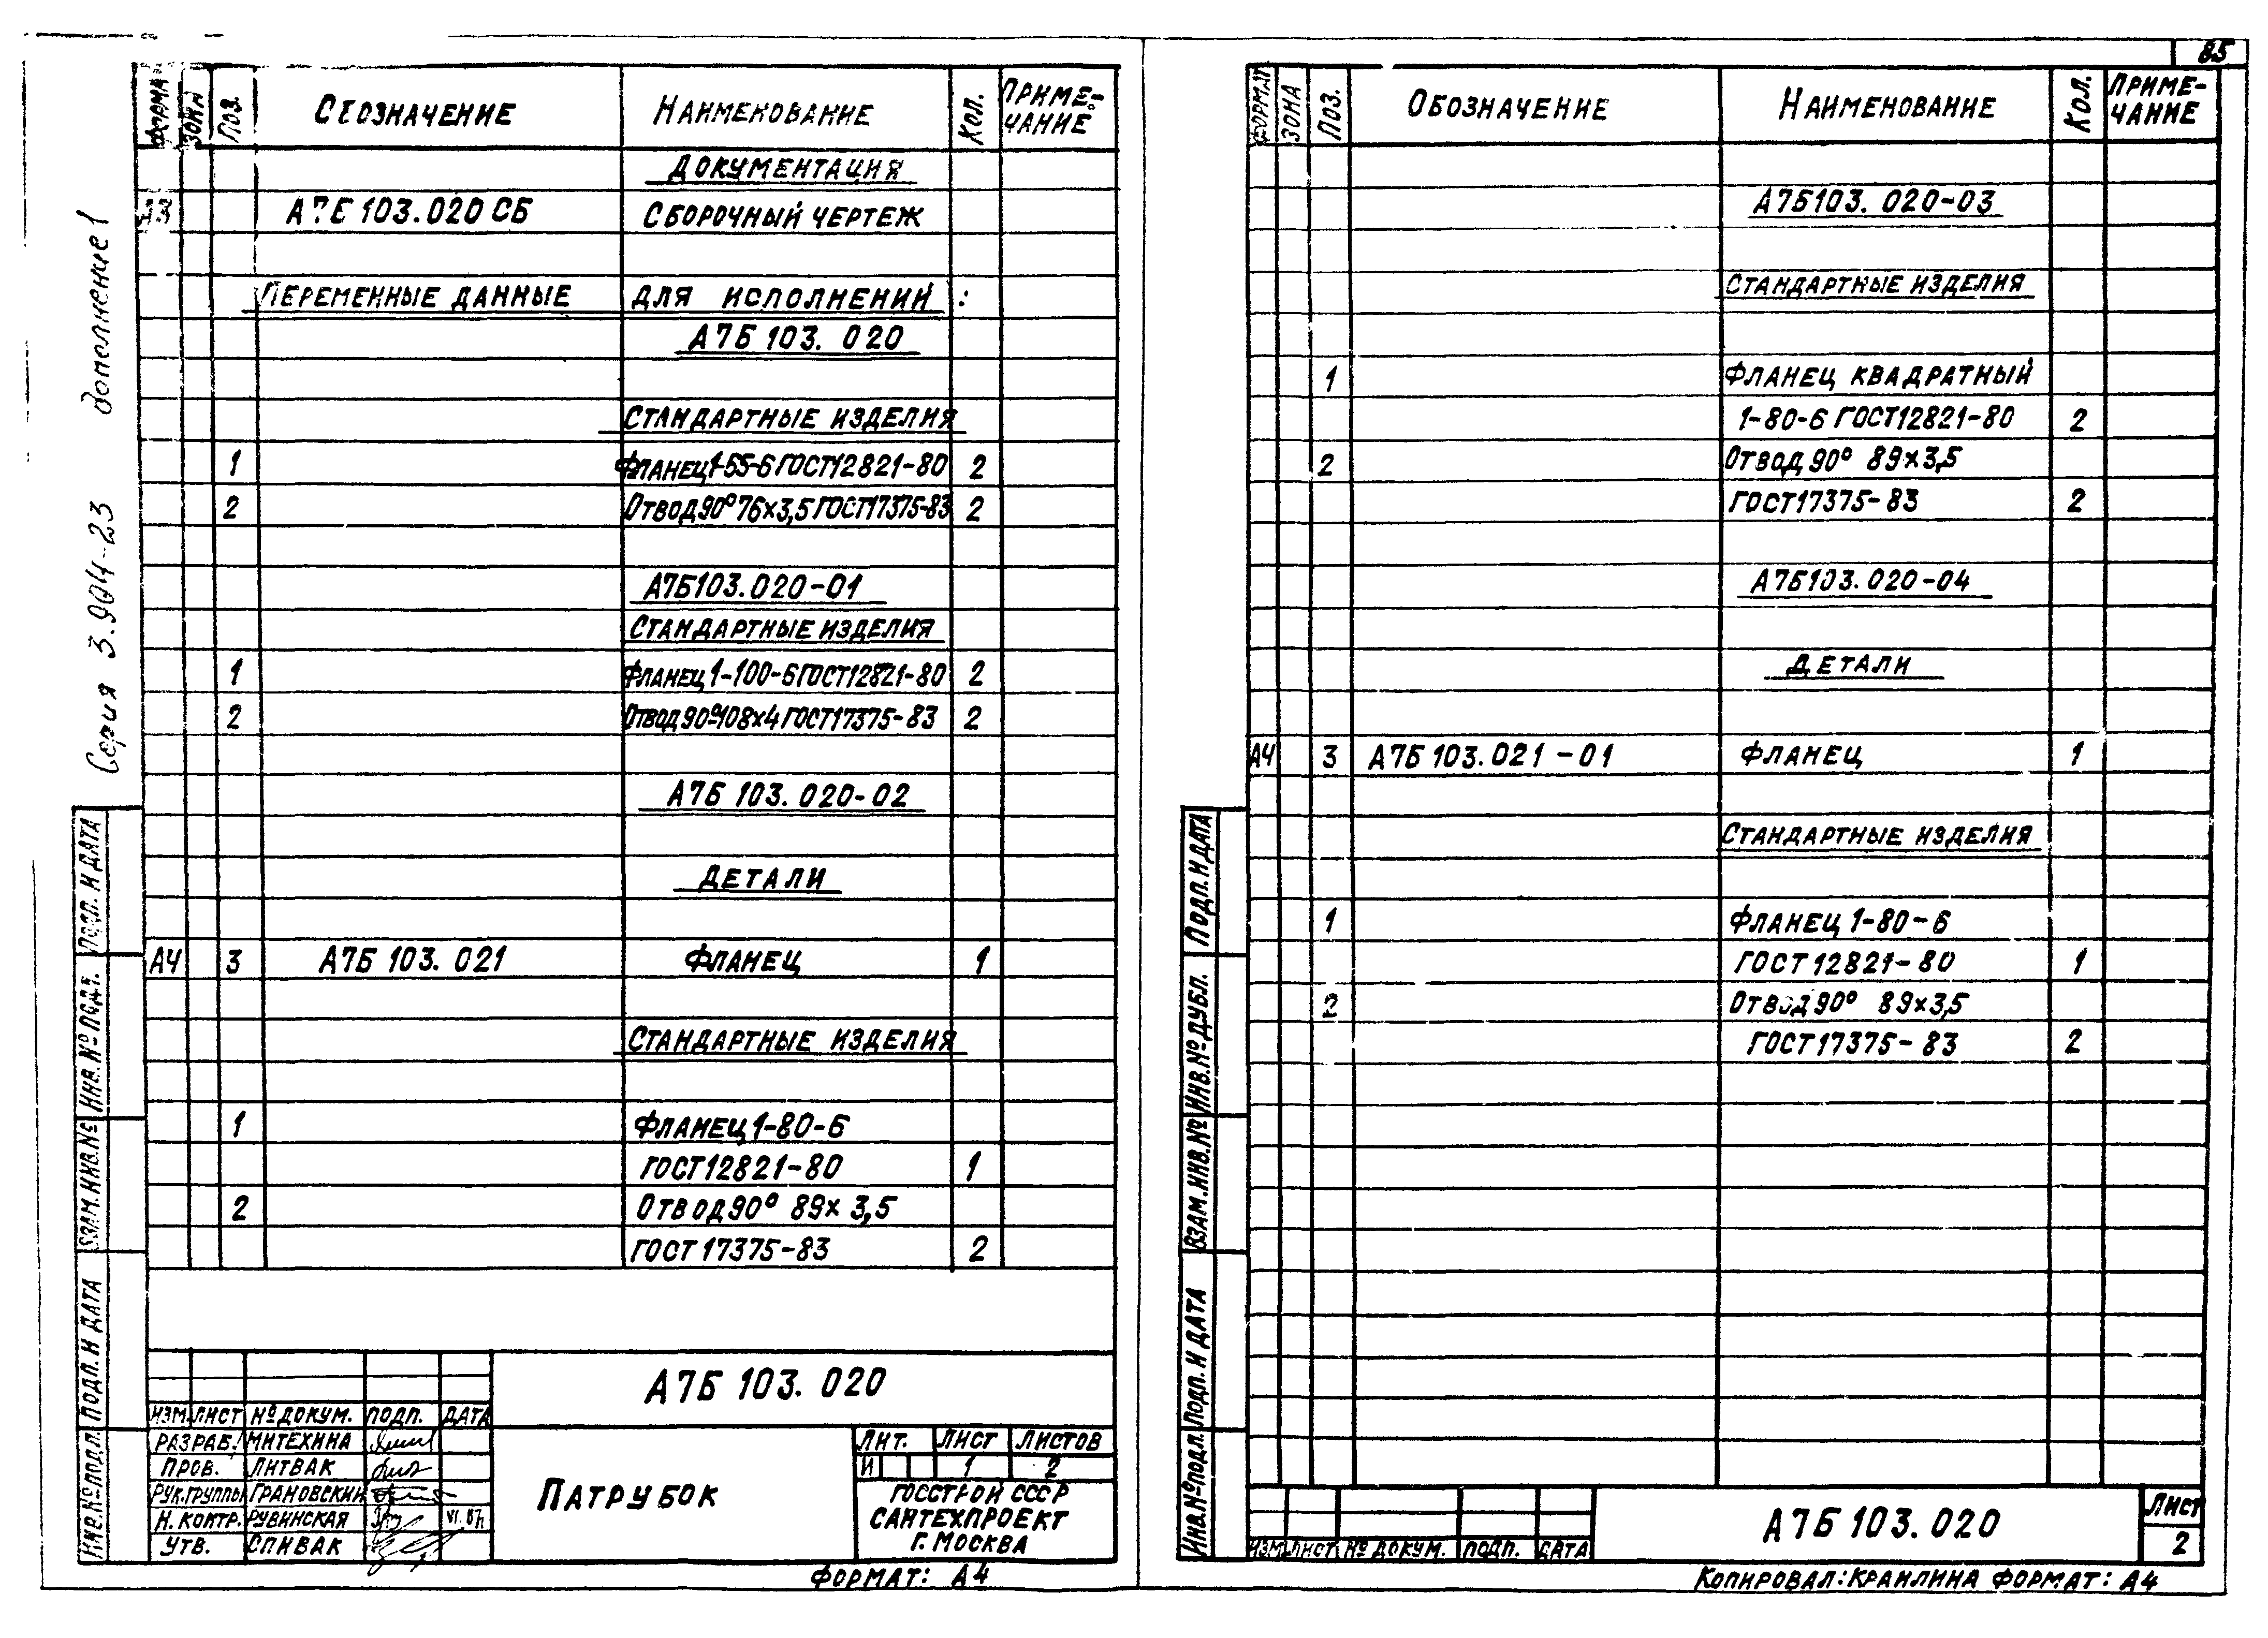 85
Серия 3.904-23 дополнение 1
Форма Зона Поз. Обозначение Наименование Кол. Приме-
чание
Документация
А3 А7Б 103.020 СБ Сборочный чертеж
Переменные данные для исполнений :
А7Б 103. 020
Стандартные изделия
1 Фланец 1-65-6 ГОСТ 12821-80 2
2 Отвод 90° 76×3,5 ГОСТ 17375-83 2
А7Б103.020-01
Стандартные изделия
1 Фланец 1-100-6 ГОСТ 12821-80 2
2 Отвод 90° 108×4 ГОСТ 17375-83 2
А7Б 103. 020-02
Детали
А4 3 А7Б 103. 021 Фланец 1
Стандартные изделия
1 Фланец 1-80-6
ГОСТ 12821-80 1
2 Отвод 90° 89×3,5
ГОСТ 17375-83 2
Инв.№ подл. Подп. и дата Взам.инв.№ Инв.№ Подп. и дата
А7Б 103. 020
Изм. Лист № докум. Подп. Дата
Разраб. Митехина
Пров. Литвак
Рук.группы Грановский
Н. контр. Рувинская VI.
Утв. Спивак
Патрубок
Лит. Лист Листов
И 1 2
Госстрой СССР
Сантехпроект
г. Москва
Формат: А4
Формат Зона Поз. Обозначение Наименование Кол. Приме-
чание
А7Б103. 020-03
Стандартные изделия
1 Фланец квадратный
1-80-6 ГОСТ 12821-80 2
2 Отвод 90° 89×3,5
ГОСТ 17375-83 2
А7Б103.020-04
Детали
А4 3 А7Б 103.021-01 Фланец 1
Стандартные изделия
1 Фланец 1-80-6
ГОСТ 12821-80 1
2 Отвод 90° 89×3,5
ГОСТ 17375-83 2
Инв.№ подл. Подп. и дата Взам.инв.№ Инв.№ дубл. Подп. и дата
Изм. Лист № докум. Подп. Дата
А7Б 103.020
Лист
2
Копировал: Кранлина Формат: А4